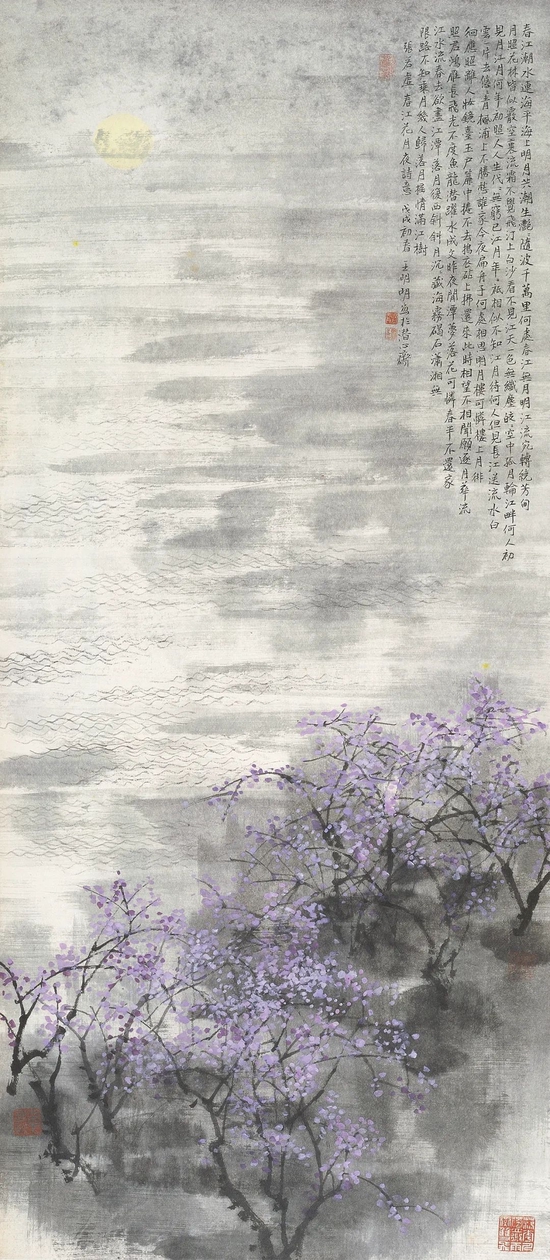 春江潮水連海平海上明月共潮生灩灩隨波千萬里何處春江無月明江流宛轉繞芳甸
月照花林皆似霰空裏流霜不覺飛汀上白沙看不見江天一色無纖塵皎皎空中孤月輪江畔何人初
見月江月何年初照人人生代代無窮已江月年年祗相似不知江月待何人但見長江送流水白
雲一片去悠悠青楓浦上不勝愁誰家今夜扁舟子何處相思明月樓可憐樓上月徘
徊應照離人妝鏡臺玉戶簾中捲不去搗衣砧上拂還來此時相望不相聞願逐月華流
照君鴻雁長飛光不度魚龍潛躍水成文昨夜閒潭夢落花可憐春半不還家
江水流春去欲盡江潭落月復西斜斜月沉沉藏海霧碣石瀟湘無
限路不知乘月幾人歸落月搖情滿江樹
張若虛春江花月夜詩意 戊戌初春 王明明寫於潛心齋